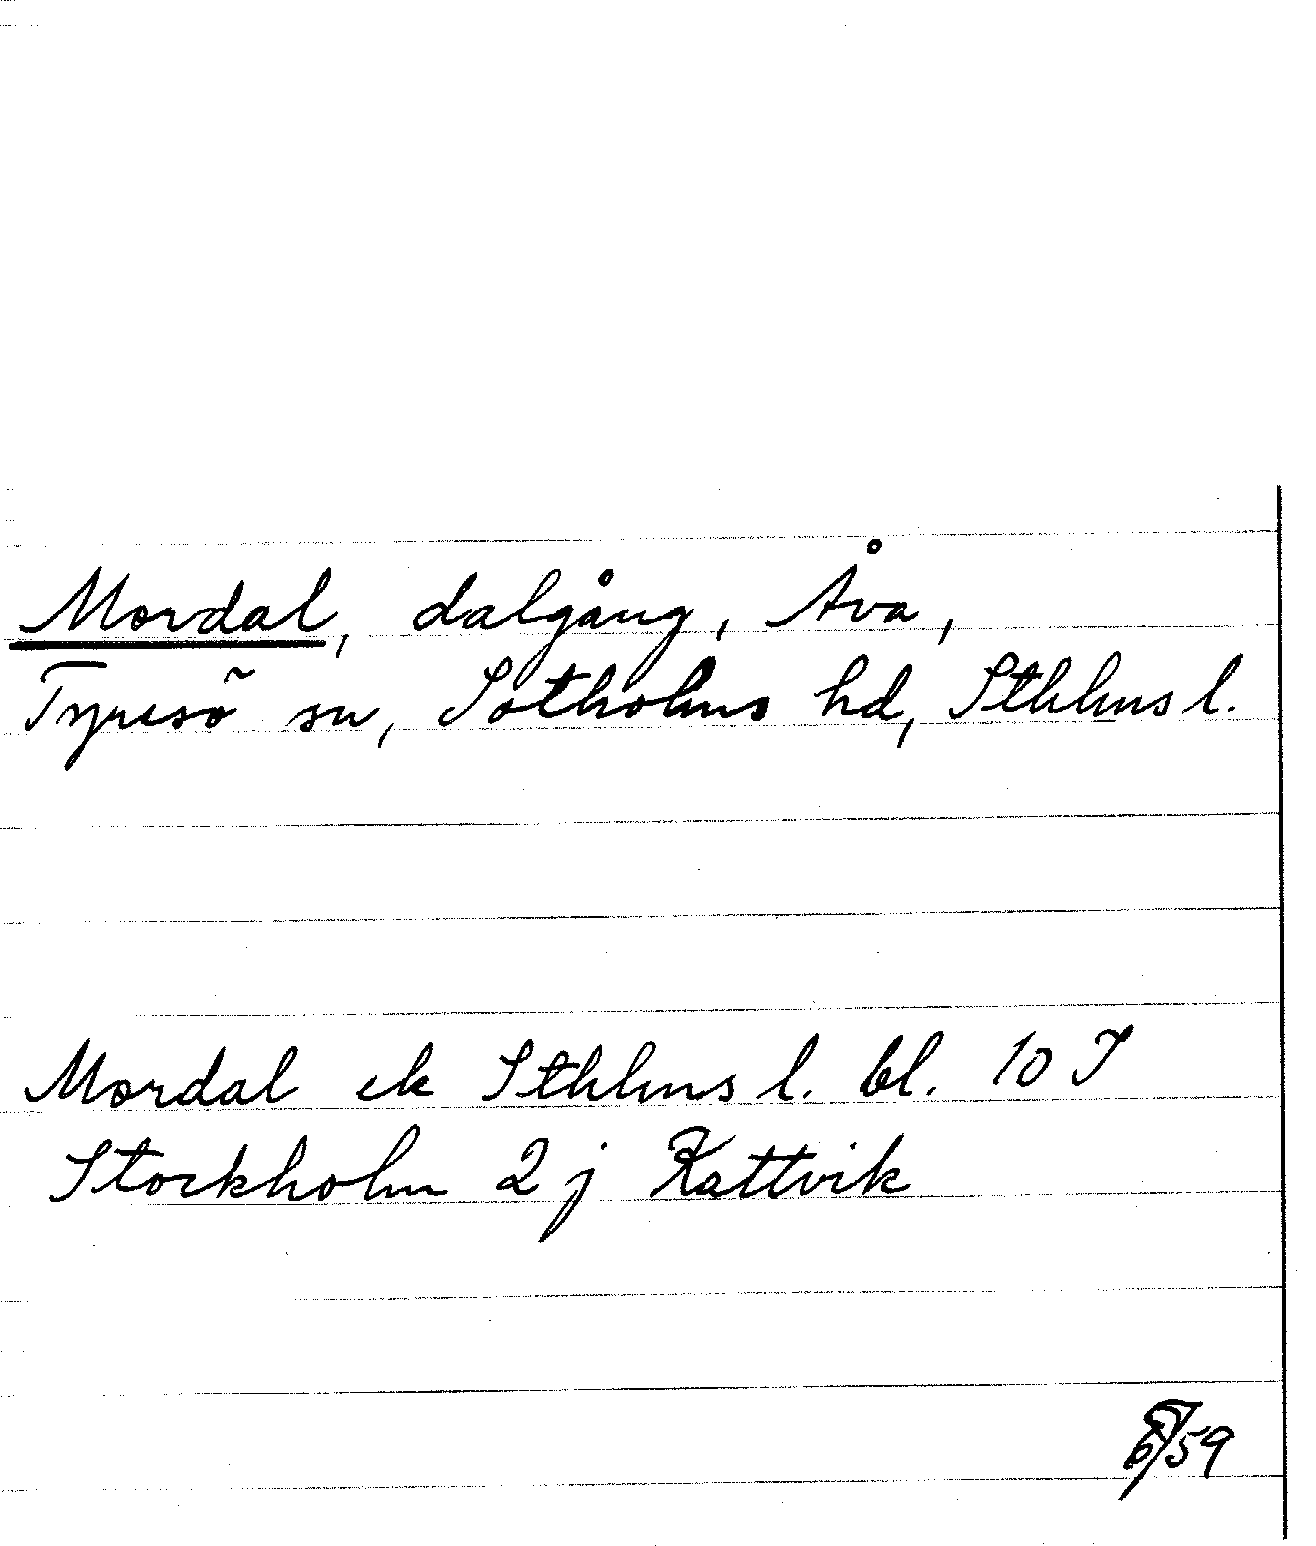 Mordal, dalgång, Åva,
Tyresö sn, Sotholms hd, Sthlms l.
Mordal ek Sthlms l. bl. 10 I
Stockholm 2 j Kattvik
/59